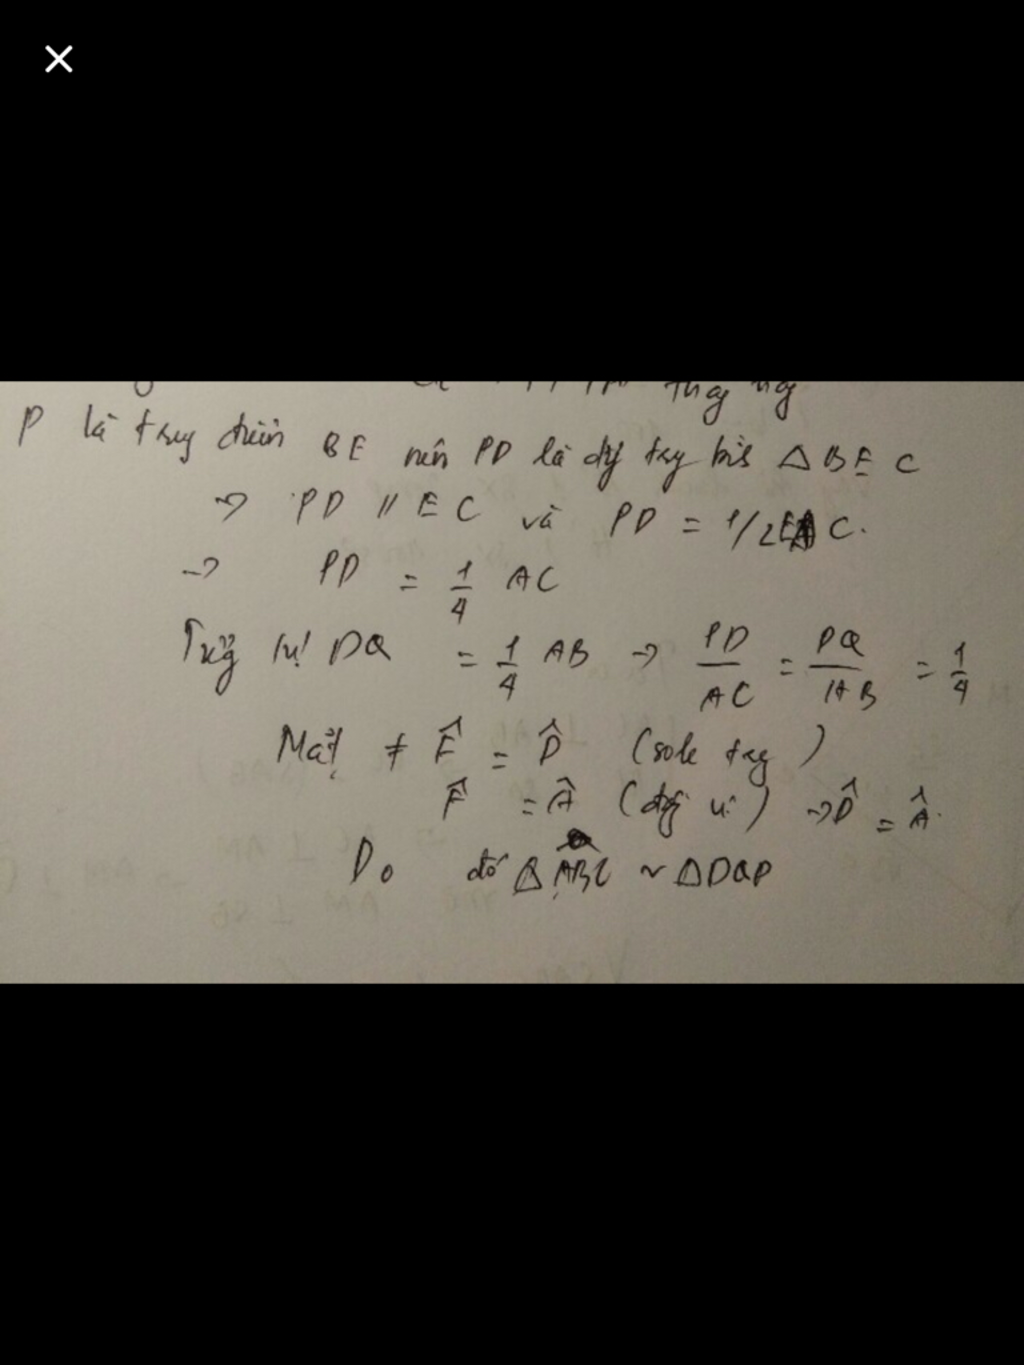 P là trung điểm BE nên PD là đg trg bìh △ BEC
→ PD // EC và PD = 1/2 EC.
→ PD = 1/4 AC
DQ = 1/4 AB → PD/AC = PQ/AB = 1/4
Mặt ≠ Ê = D̂ (sole trg)
F̂ = Â (đg vị) → D̂ = Â.
Do đó △ ABC ~ △DQP